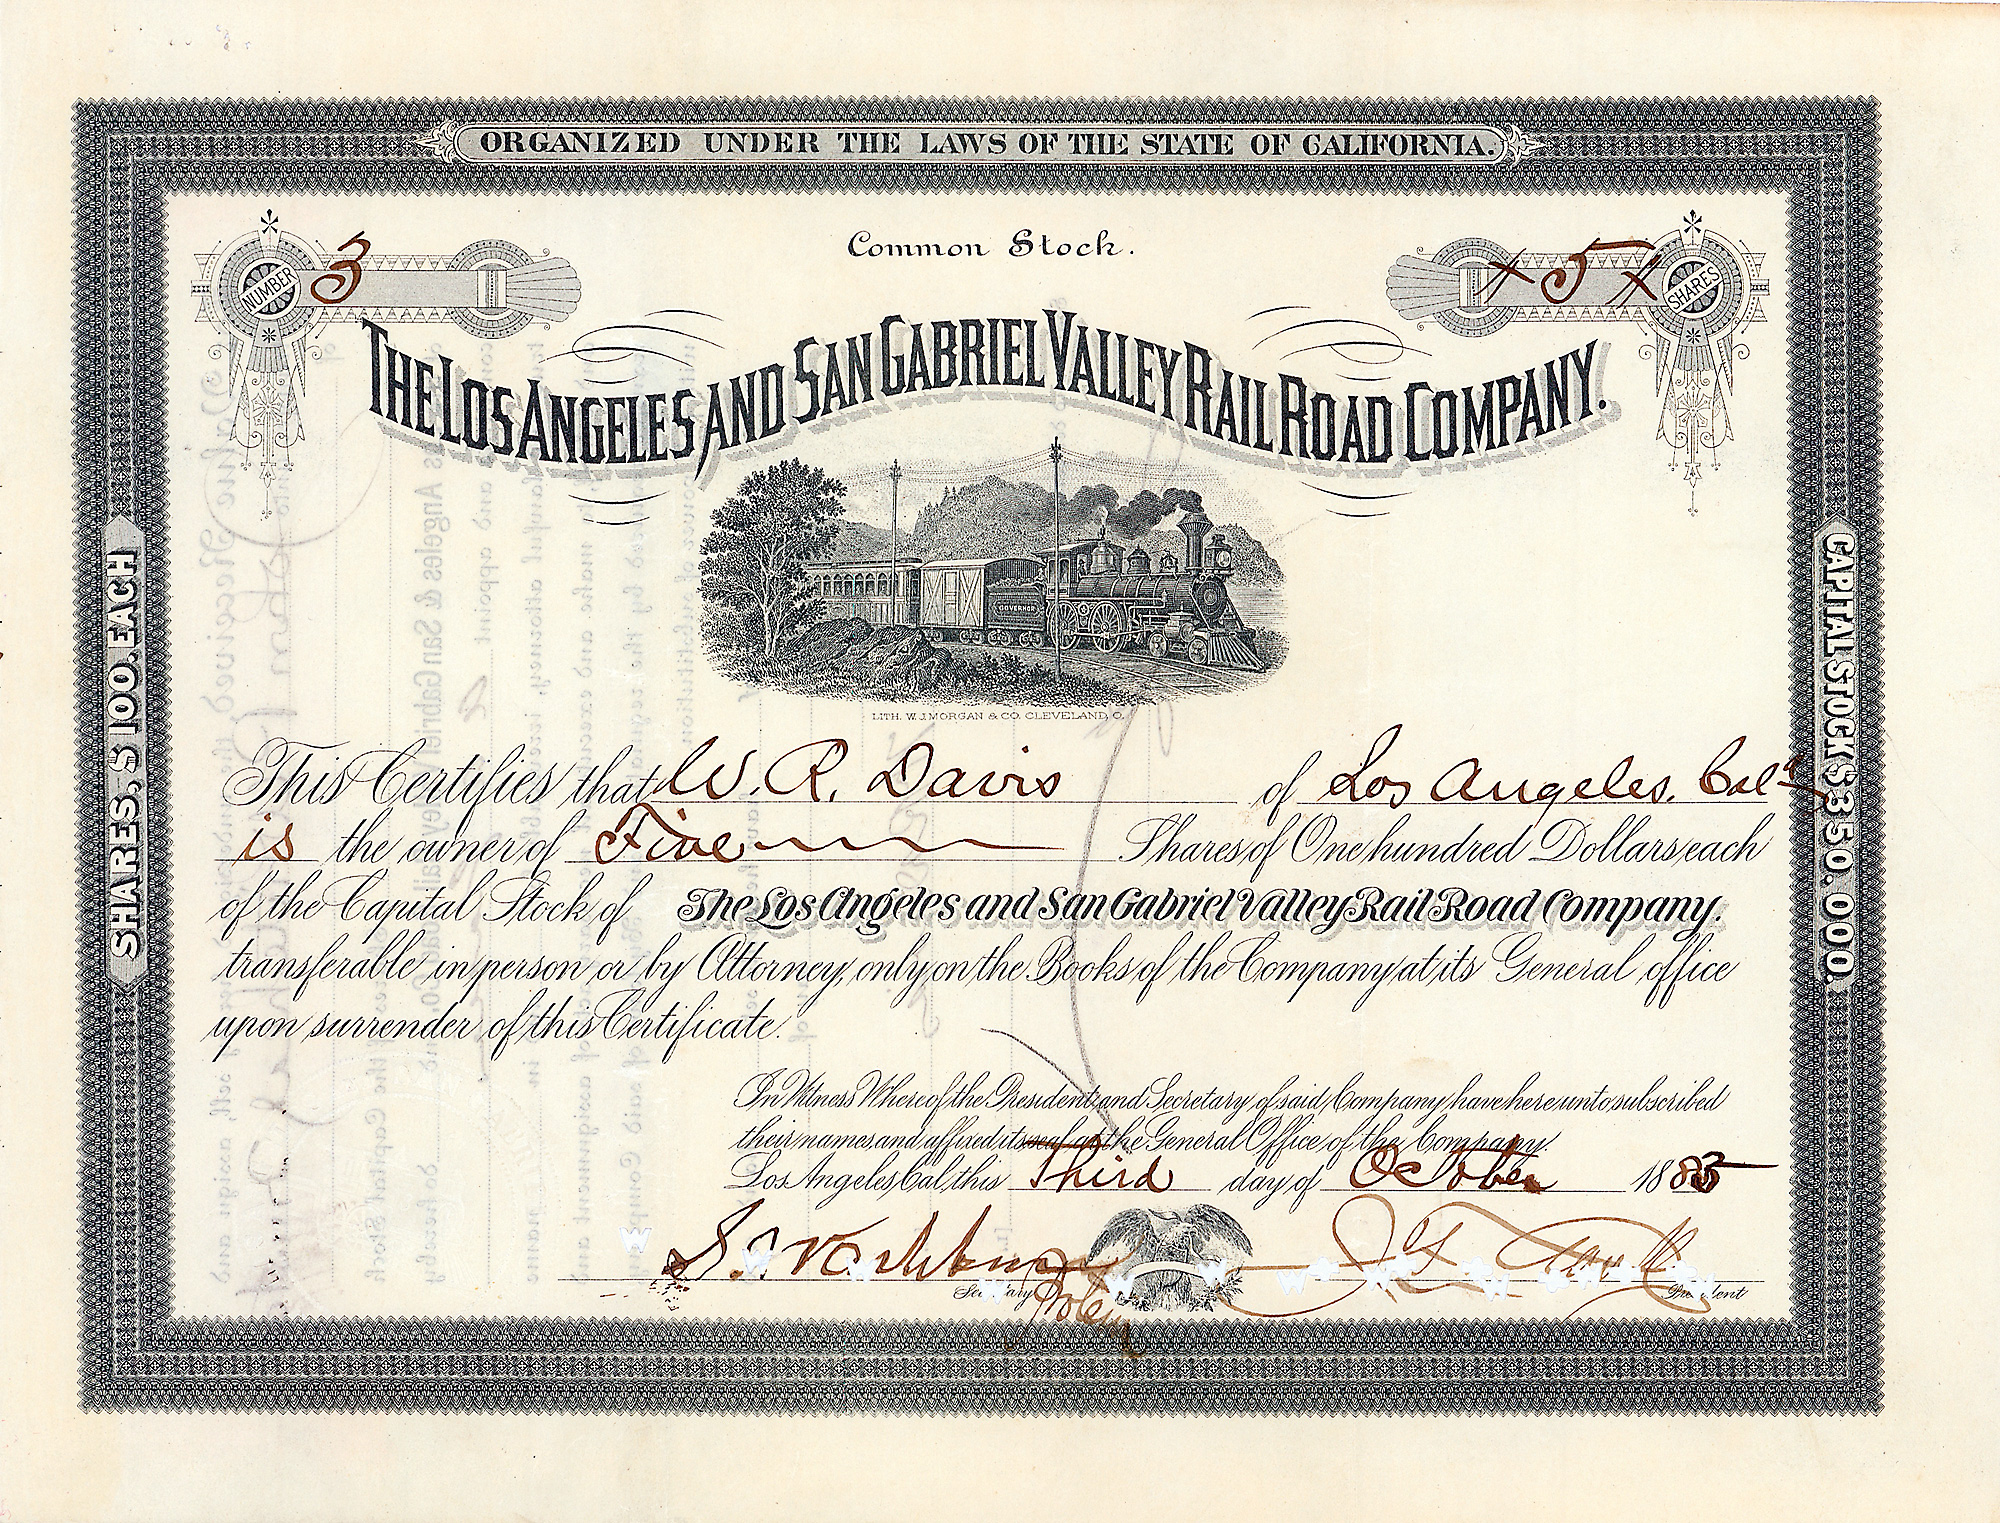 ORGANIZED UNDER THE LAWS OF THE STATE OF CALIFORNIA.
Common Stock.
NUMBER 3
5 SHARES
THE LOS ANGELES AND SAN GABRIEL VALLEY RAIL ROAD COMPANY.
GOVERNOR
LITH. W. J. MORGAN & CO. CLEVELAND, O.
SHARES, $100. EACH
CAPITAL STOCK $350.000.
This Certifies that W. R. Davis of Los Angeles, Cala
is the owner of Five Shares of One hundred Dollars each
of the Capital Stock of The Los Angeles and San Gabriel Valley Rail Road Company.
transferable in person or by Attorney, only on the Books of the Company at its General office
upon surrender of this Certificate.
In Witness Whereof the President and Secretary of said Company have hereunto subscribed
their names and affixed its seal at the General Office of the Company.
Los Angeles, Cal, this Third day of October 1883
Secretary
President